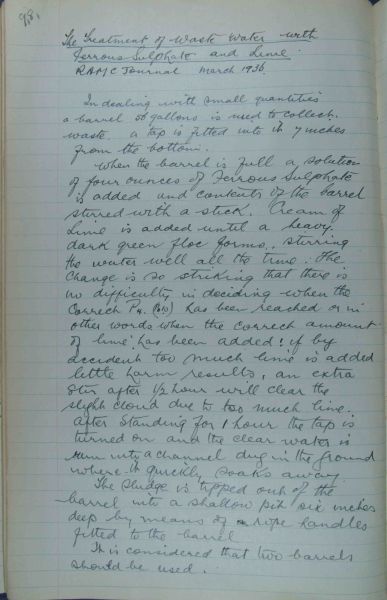 98.
The Treatment of Waste Water with
Ferrous Sulphate and Lime.
RAMC Journal March 1936.
In dealing with small quantities
a barrel 50 gallons is used to collect
waste. a tap is fitted into it 7 inches
from the bottom.
When the barrel is full a solution
of four ounces of Ferrous Sulphate
is added and contents of the barrel
stirred with a stick. Cream of
Lime is added until a heavy
dark green floc forms, stirring
the water well all the time. The
change is so striking that there is
no difficulty in deciding when the
Correct PH. has been reached or in
other words when the correct amount
of lime has been added: if by
accident too much lime is added
little harm results, an extra
Stir after 1/2 hour will clear the
slight cloud due to too much lime.
After Standing for 1 hour the tap is
turned on and the clear water is
run into a channel dug in the ground
where it quickly soaks away.
The Sludge is tipped out of the
barrel into a shallow pit six inches
deep by means of rope handles
fitted to the barrel
It is considered that two barrels
should be used.